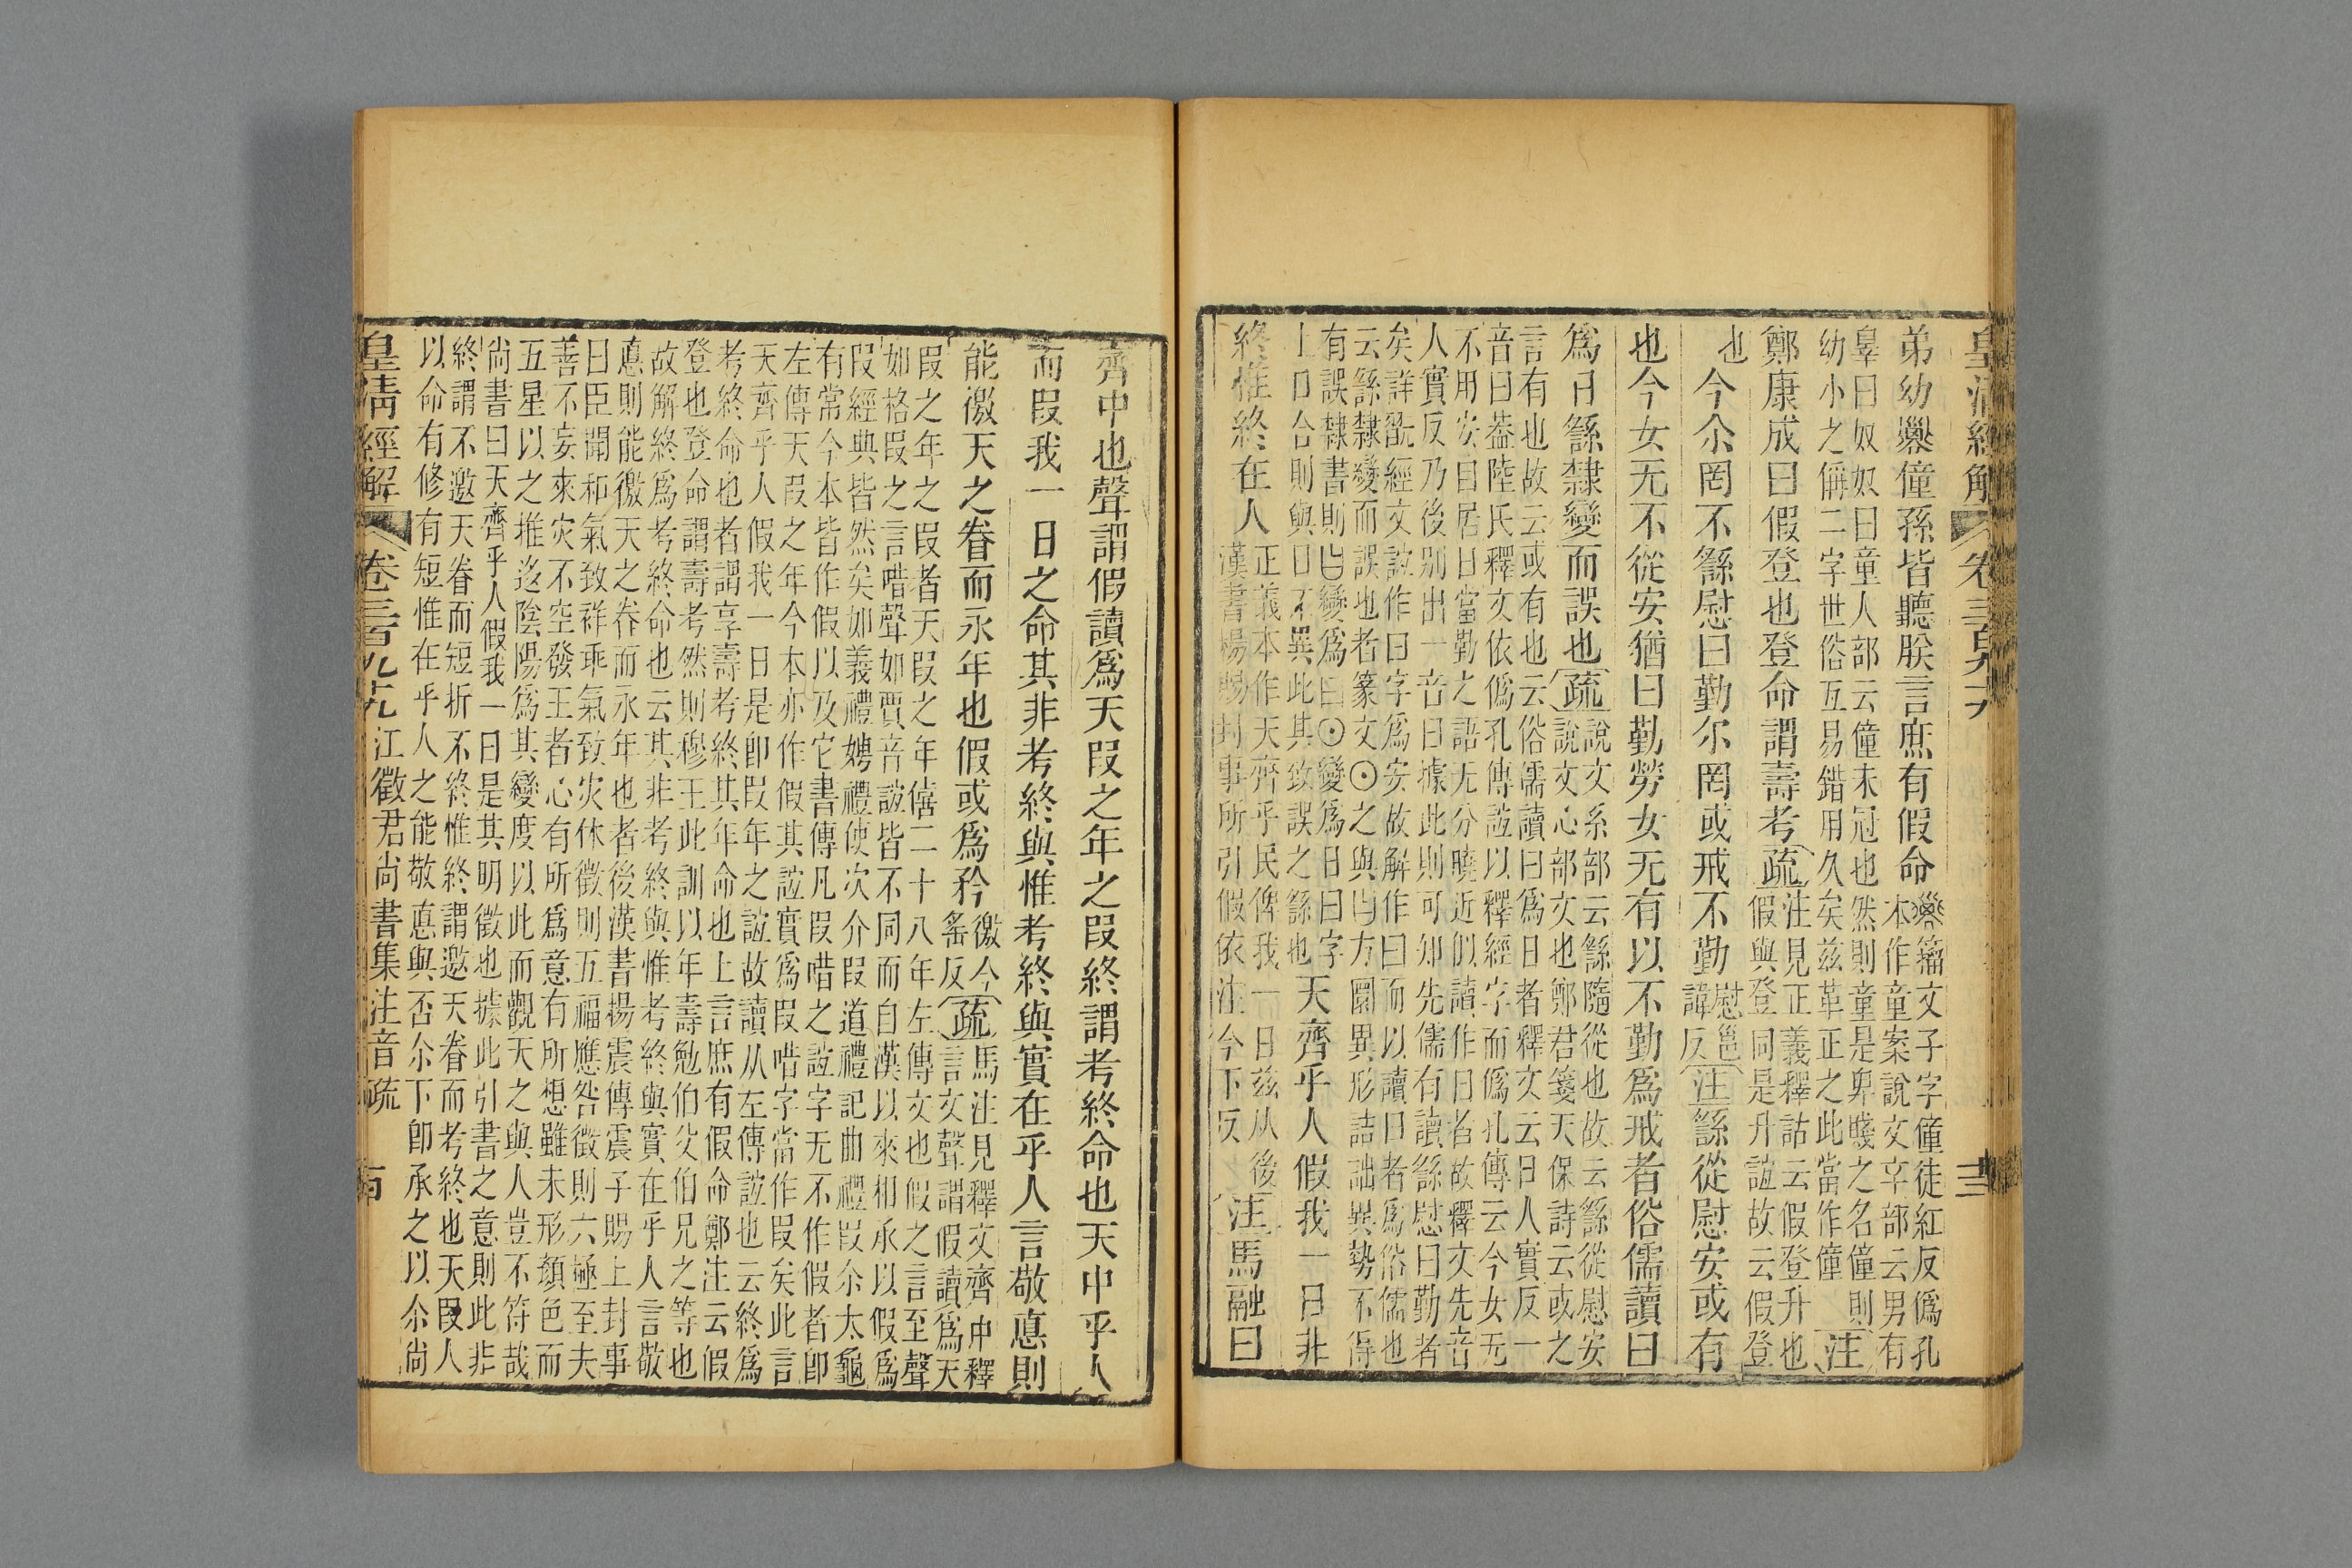 皇清經解 卷三百九十六
弟幼㜸僮孫皆聽朕言庶有假命
籀文子字僮徒紅反僞孔
本作童案說文䇂部云男有
辠曰奴奴曰童人部云僮未冠也然則童是卑賤之名僮則
幼小之偁二字世俗互易錯用久矣兹革正之此當作僮
注
鄭康成曰假登也登命謂壽考
疏
注見正義釋詁云假登升也
假與登同是升誼故云假登
也
今尒罔不繇慰曰勤尒罔或戒不勤
慰邕
諱反
注
繇從慰安或有
也今女无不從安猶曰勤勞女无有以不勤爲戒者俗儒讀曰
爲日繇隸變而誤也
疏
說文系部云繇隨從也故云繇從慰安
說文心部文也鄭君箋天保詩云或之
言有也故云或有也云俗儒讀曰爲日者釋文云日人實反一
音曰葢陸氏釋文依僞孔傳誼以釋經字而僞孔傳云今女无
不用安自居日當勤之語无分曉近似讀作日者故釋文先音
人實反乃後別出一音曰據此則可知先儒有讀繇慰曰勤者
矣詳翫經文誼作曰字爲安故解作曰而以讀日者爲俗儒也
云繇隸變而誤也者篆文⊙之與㔾方圜異形詰詘異勢不得
有誤隸書則㔾變爲曰⊙變爲日曰字
上口合則與日不異此其致誤之繇也
天齊乎人假我一日非
終惟終在人
正義本作天齊乎民俾我一日兹从後
漢書楊賜封事所引假依注今下反
注
馬融曰
齊中也聲謂假讀爲天叚之年之叚終謂考終命也天中乎人
而叚我一日之命其非考終與惟考終與實在乎人言敬悳則
能徼天之眷而永年也假或爲矜
徼今
䍃反
疏
馬注見釋文齊中釋
言文聲謂假讀爲天
叚之年之叚者天叚之年僖二十八年左傳文也假之言至聲
如格叚之言唶聲如賈音誼皆不同而自漢以來相承以假爲
叚經典皆然矣如義禮娉禮使次介叚道禮記曲禮叚尒太龜
有常今本皆作假以及它書傳凡叚唶之誼字无不作假者卽
左傳天叚之年今本亦作假其誼實爲叚唶字當作叚矣此言
天齊乎人假我一日是卽叚年之誼故讀从左傳誼也云終爲
考終命也者謂享壽考終其年命也上言庶有假命鄭注云假
登也登命謂壽考然則穆王此訓以年壽勉伯父伯兄之等也
故解終爲考終命也云其非考終與惟考終與實在乎人言敬
悳則能徼天之眷而永年也者後漢書楊震傳震子賜上封事
曰臣聞和氣致祥乖氣致灾休徵則五福應咎徵則六極至夫
善不妄來灾不空發王者心有所爲意有所想雖未形顏色而
五星以之推迻陰陽爲其變度以此而觀天之與人豈不符哉
尚書曰天齊乎人假我一日是其明徵也據此引書之意則此非
終謂不邀天眷而短折不終惟終謂邀天眷而考終也天叚人
以命有修有短惟在乎人之能敬悳與否尒下卽承之以尒尚
皇清經解 卷三百九十六 江徵君尚書集注音疏